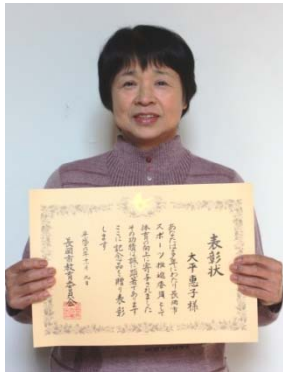 表彰状
大平惠子様
あなたは多年にわたり長岡市
スポーツ推進委員として
体育の向上に寄与されました
その功績は誠に顕著であります
ここに記念品を贈り表彰
します
長岡市教育委員会